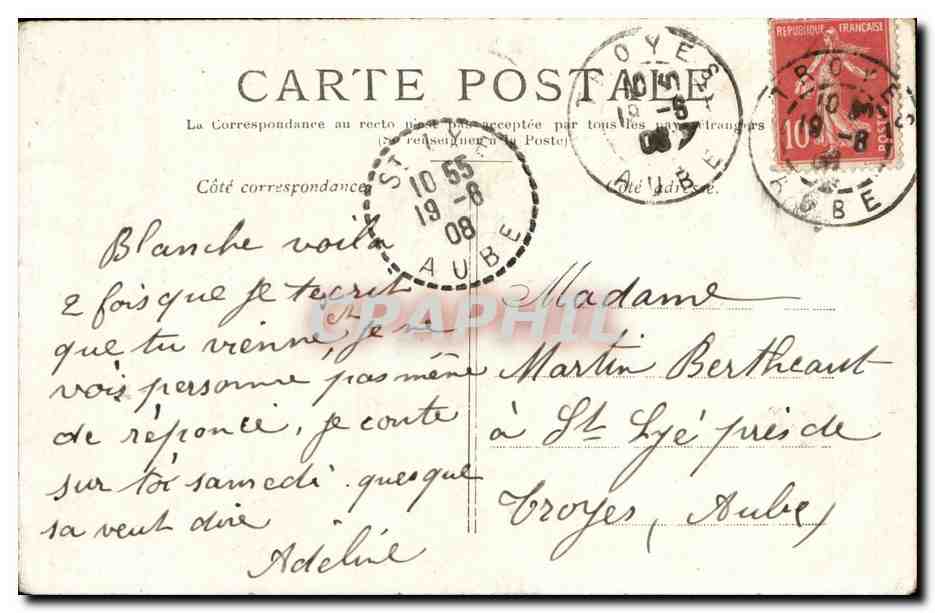 CARTE POSTALE
La Correspondance au recto n'est pas acceptée par tous les pays étrangers
(Se renseigner à la Poste)
Côté correspondance
Côté adresse.
REPUBLIQUE FRANÇAISE
10
POSTES
TROYES
10
19 -8
08
AUBE
OYES
10 5
19 -8
08
AUBE
ST LYE
10 55
19 -8
08
AUBE
Blanche voila
2 fois que je tecrit
que tu vienne, et je ne
vois personne, pas mêne
de réponce, je conte
sur toi samedi. quesque
sa veut dire
Adeline
Madame
Martin Bertheaut
à St Lyé près de
Troyes, Aube)
CPAPHIL